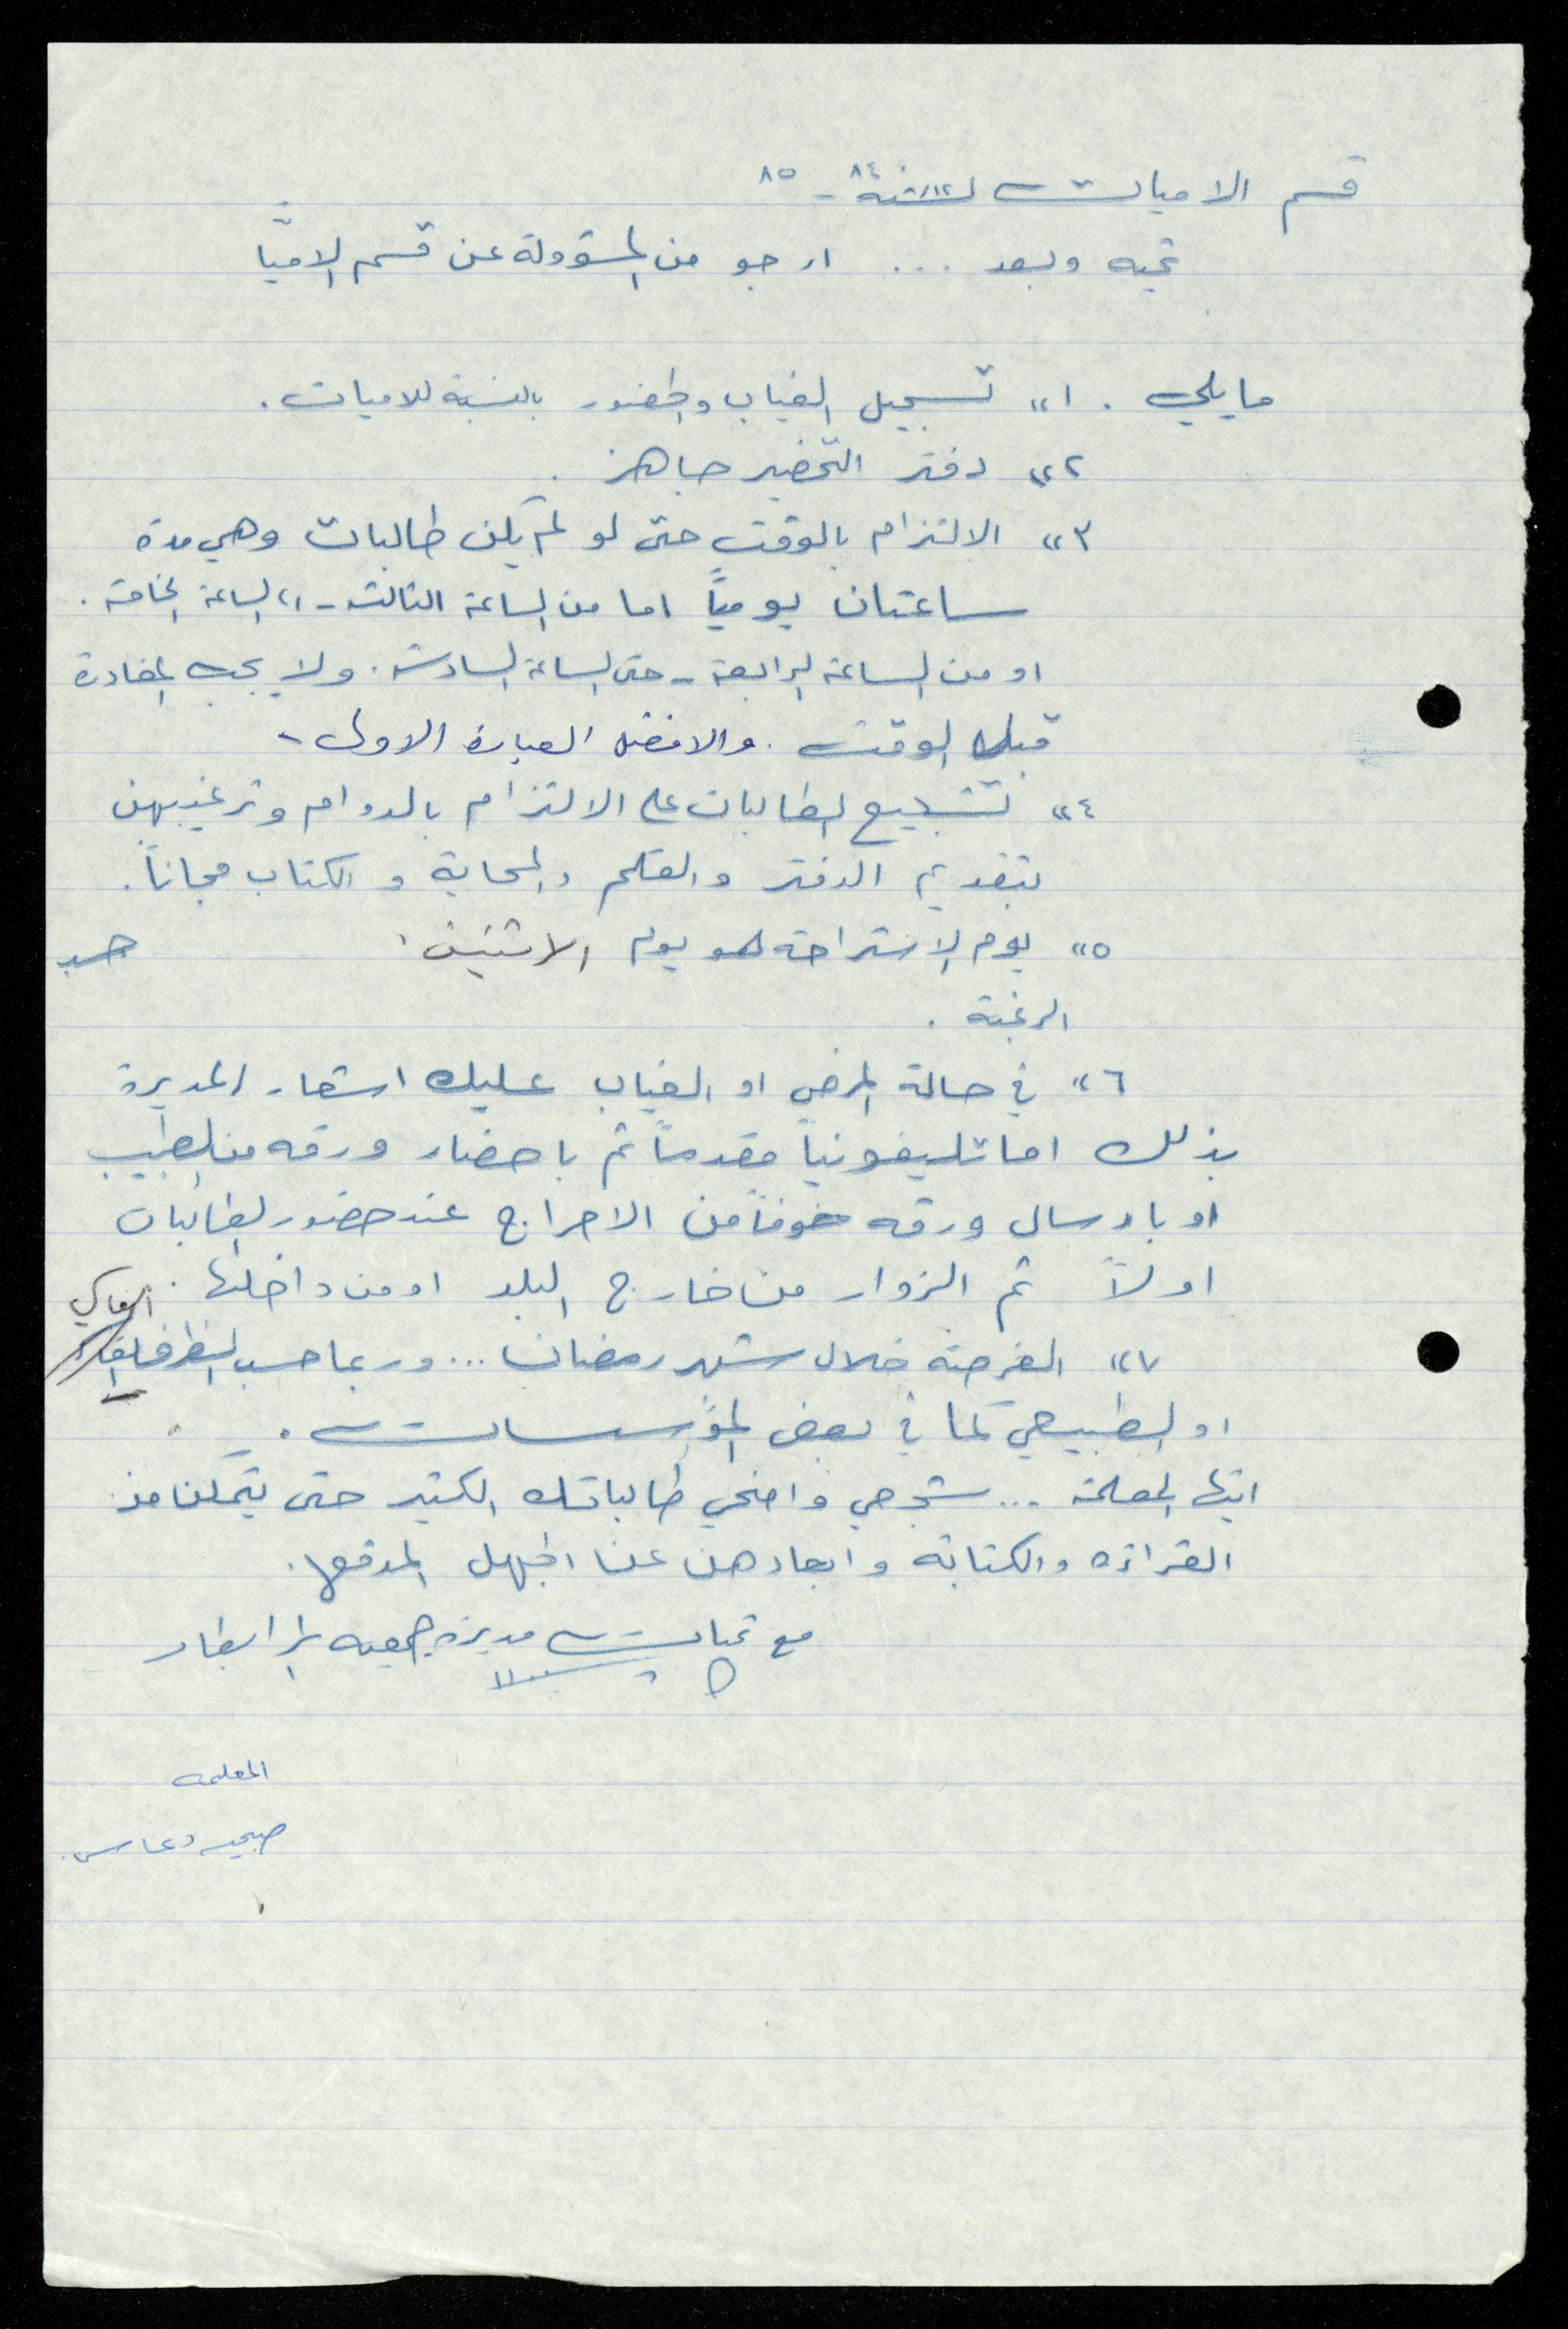 قسم الاميات لسنة ٨٤ - ٨٥
تحيه وبعد ... ارجو من المسؤولة عن قسم الاميّا
ما يلي . ١" تسجيل الغياب والحضور بالنسبة للاميات .
٢" دفتر التحضير جاهز .
٣" الالتزام بالوقت حتى لو لم يكن طالبات وهي مدة
ساعتان يومياً اما من الساعة الثالثه - الساعة الخامسة .
او من الساعة الرابعة - حتى الساعة السادسة . ولا يجب المغادرة
قبل الوقت . والافضل العبارة الاولى -
٤" تشجيع الطالبات على الالتزام بالدوام وترغيبهن
بتقديم الدفتر والقلم والمحاية والكتاب مجاناً .
٥" يوم الاستراحة هو يوم الاثنين . حسب
الرغبة .
٦" في حالة المرض او الغياب عليك اشعار المديرة
بذلك اما تليفونياً مقدماً ثم باحضار ورقه من الطبيب
او بارسال ورقه خوفاً من الاحراج عند حضور الطالبات
اولاً ثم الزوار من خارج البلد او من داخلها .
٧" الفرصة خلال شهر رمضان ... وربما حسب الظرف
او الطبيعي كما في بعض المؤسسات .
ايتها المعلمة ... شجعي وامنحي طالباتك الكثير حتى يتمكن من
القراءه والكتابة وابعادهن عن الجهل المدقع .
مع تحيات مديرة جمعيه
المعلمه
صبحيه دعاس .